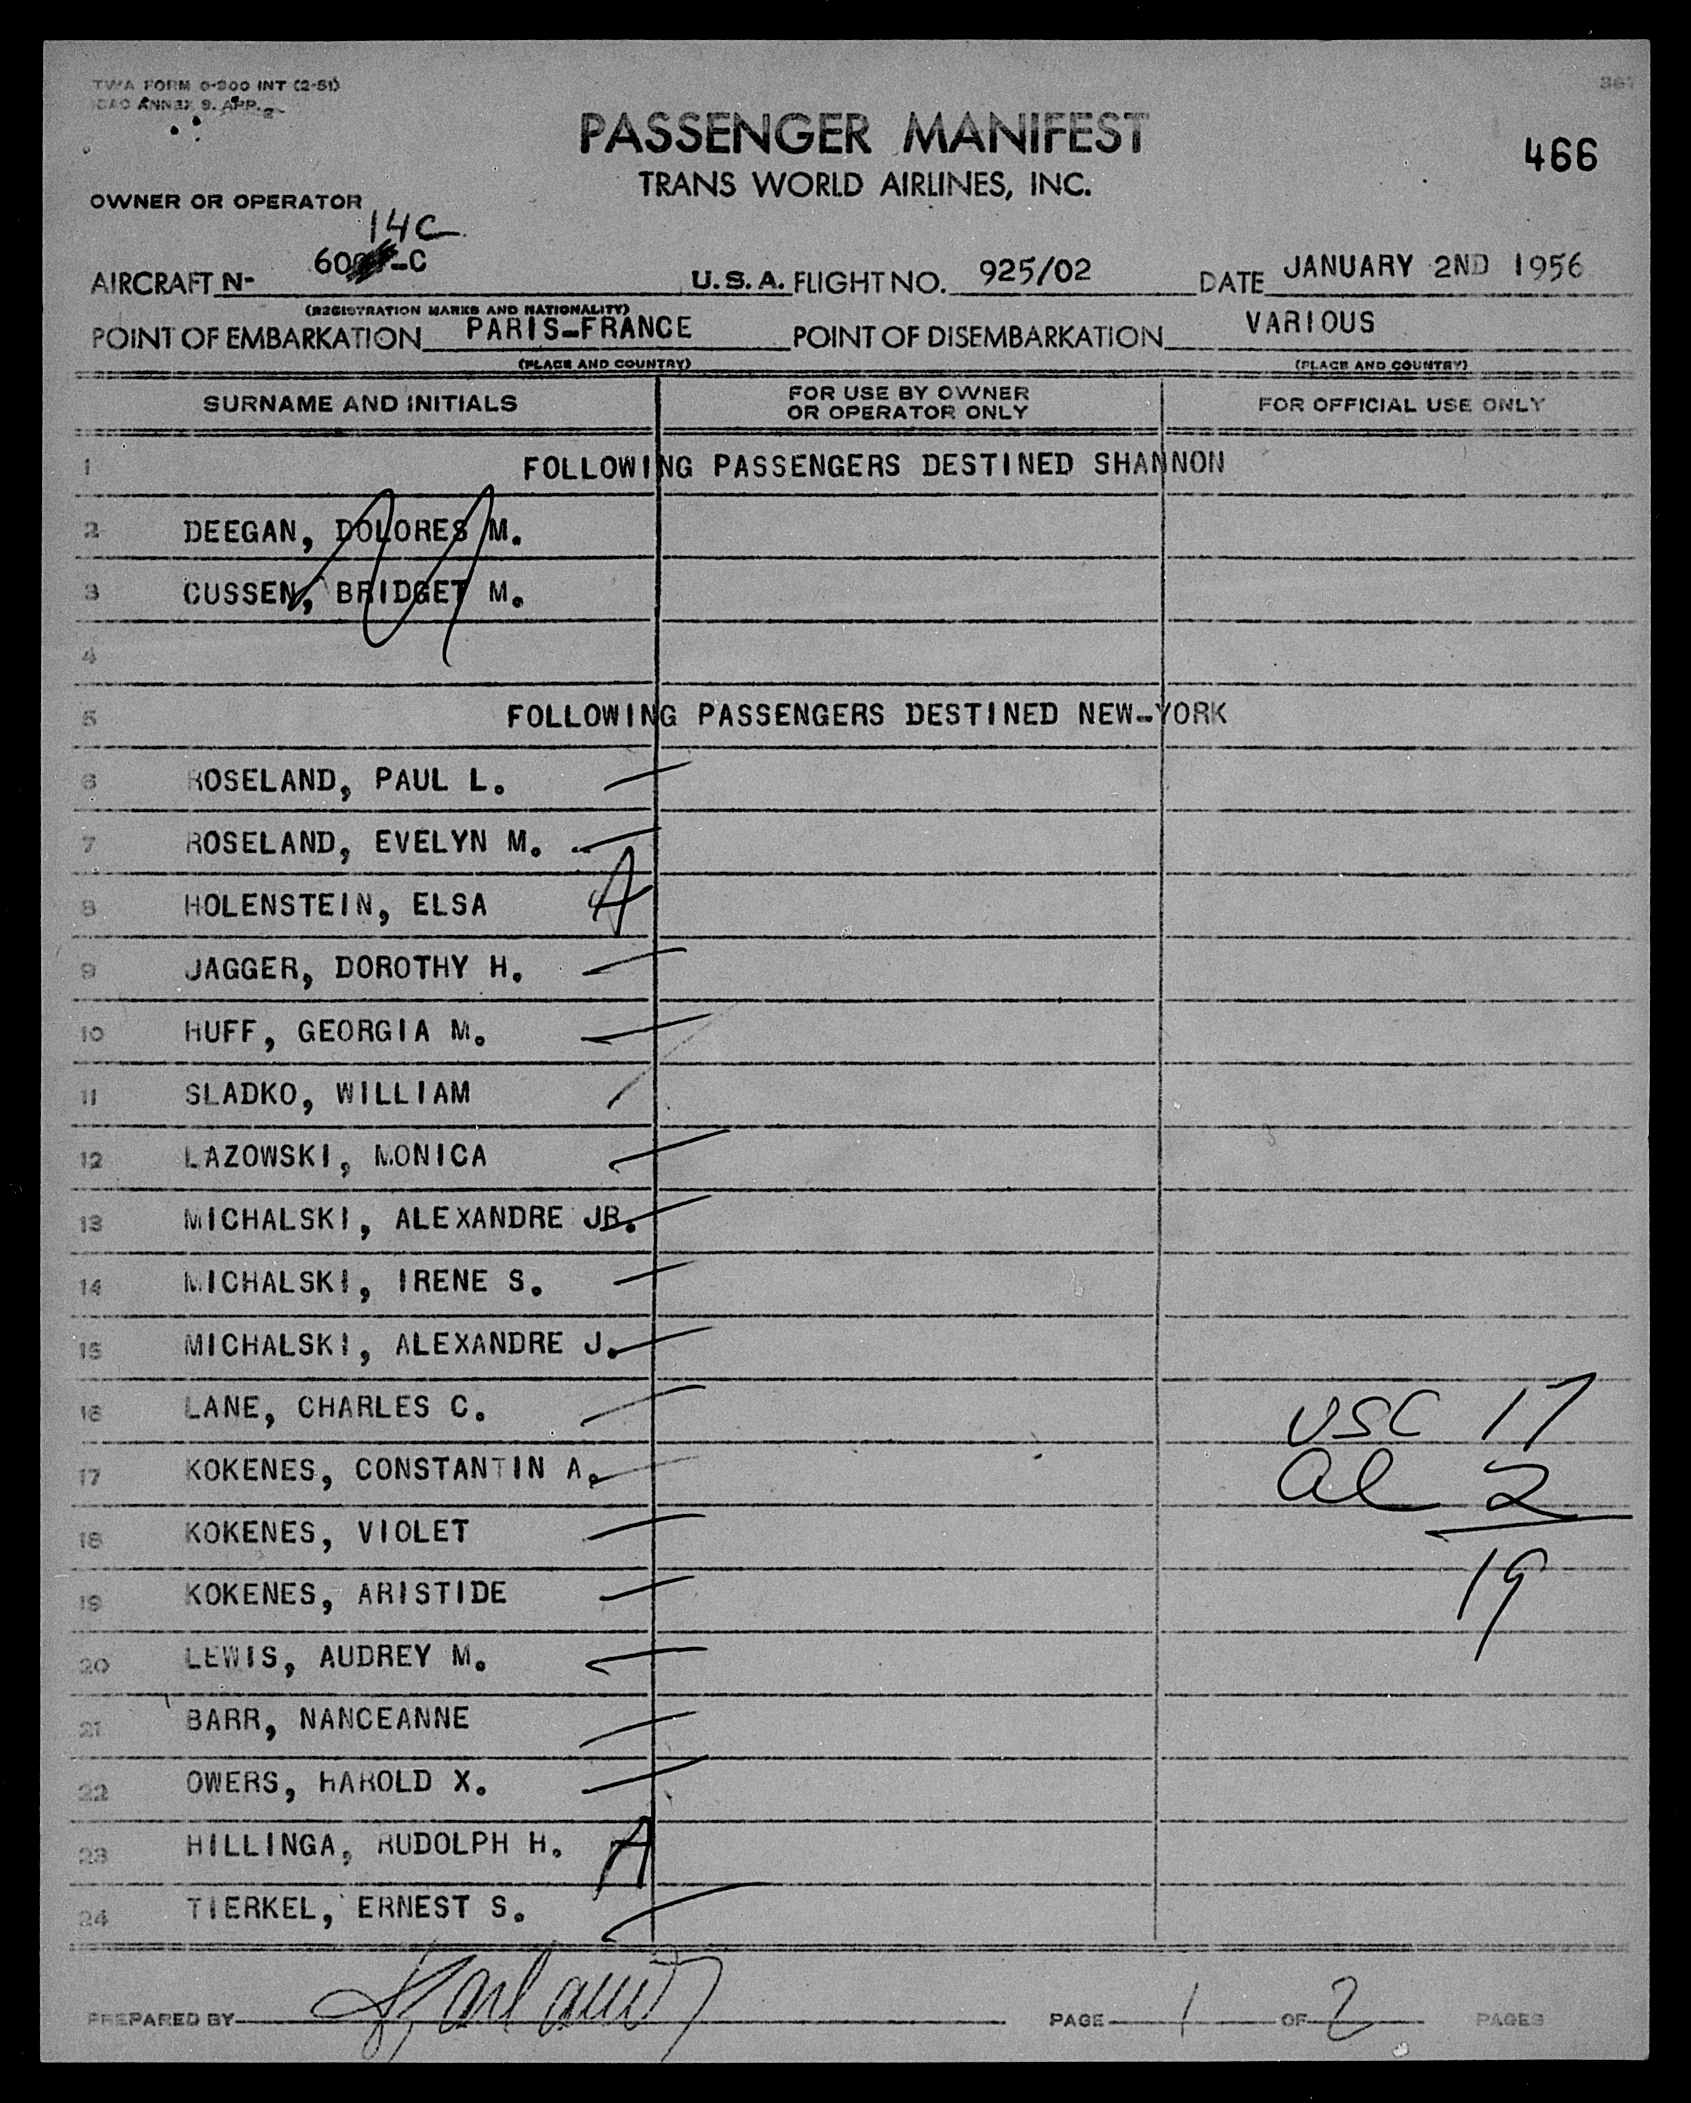 TWA FORM 0-300 INT (2-51)
ICAO ANNEX 9. APP. 2
PASSENGER MANIFEST
466
TRANS WORLD AIRLINES, INC.
OWNER OR OPERATOR
14C
AIRCRAFT N- 60 -C U.S.A. FLIGHT NO. 925/02 DATE JANUARY 2ND 1956
(REGISTRATION MARKS AND NATIONALITY)
POINT OF EMBARKATION PARIS-FRANCE POINT OF DISEMBARKATION VARIOUS
(PLACE AND COUNTRY) (PLACE AND COUNTRY)
SURNAME AND INITIALS FOR USE BY OWNER OR OPERATOR ONLY FOR OFFICIAL USE ONLY
1 FOLLOWING PASSENGERS DESTINED SHANNON
2 DEEGAN, DOLORES M.
3 CUSSEN, BRIDGET M.
4
5 FOLLOWING PASSENGERS DESTINED NEW-YORK
6 ROSELAND, PAUL L.
7 ROSELAND, EVELYN M.
8 HOLENSTEIN, ELSA A
9 JAGGER, DOROTHY H.
10 HUFF, GEORGIA M.
11 SLADKO, WILLIAM
12 LAZOWSKI, MONICA
13 MICHALSKI, ALEXANDRE JR.
14 MICHALSKI, IRENE S.
15 MICHALSKI, ALEXANDRE J.
16 LANE, CHARLES C. USC 17
17 KOKENES, CONSTANTIN A. al 2
18 KOKENES, VIOLET
19 KOKENES, ARISTIDE 19
20 LEWIS, AUDREY M.
21 BARR, NANCEANNE
22 OWERS, HAROLD X.
23 HILLINGA, RUDOLPH H. A
24 TIERKEL, ERNEST S.
PREPARED BY PAGE 1 OF 2 PAGES